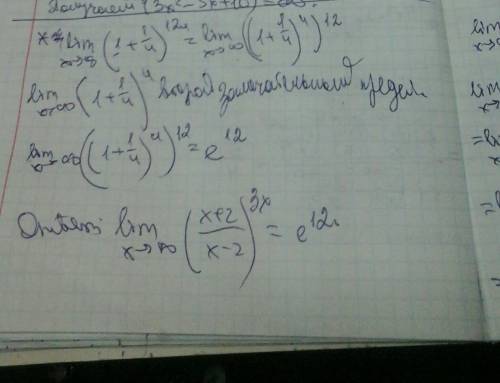 Получаем (3x²-5x+10) = ∞.
lim x→∞ (1+1/u)^12u = lim x→∞ ((1+1/u)^u)^12
lim x→∞ (1+1/u)^u второй замечательный предел.
lim x→∞ ((1+1/u)^u)^12 = e^12
Ответ: lim x→∞ ((x+2)/(x-2))^3x = e^12.
lim
lim
=lim
=(